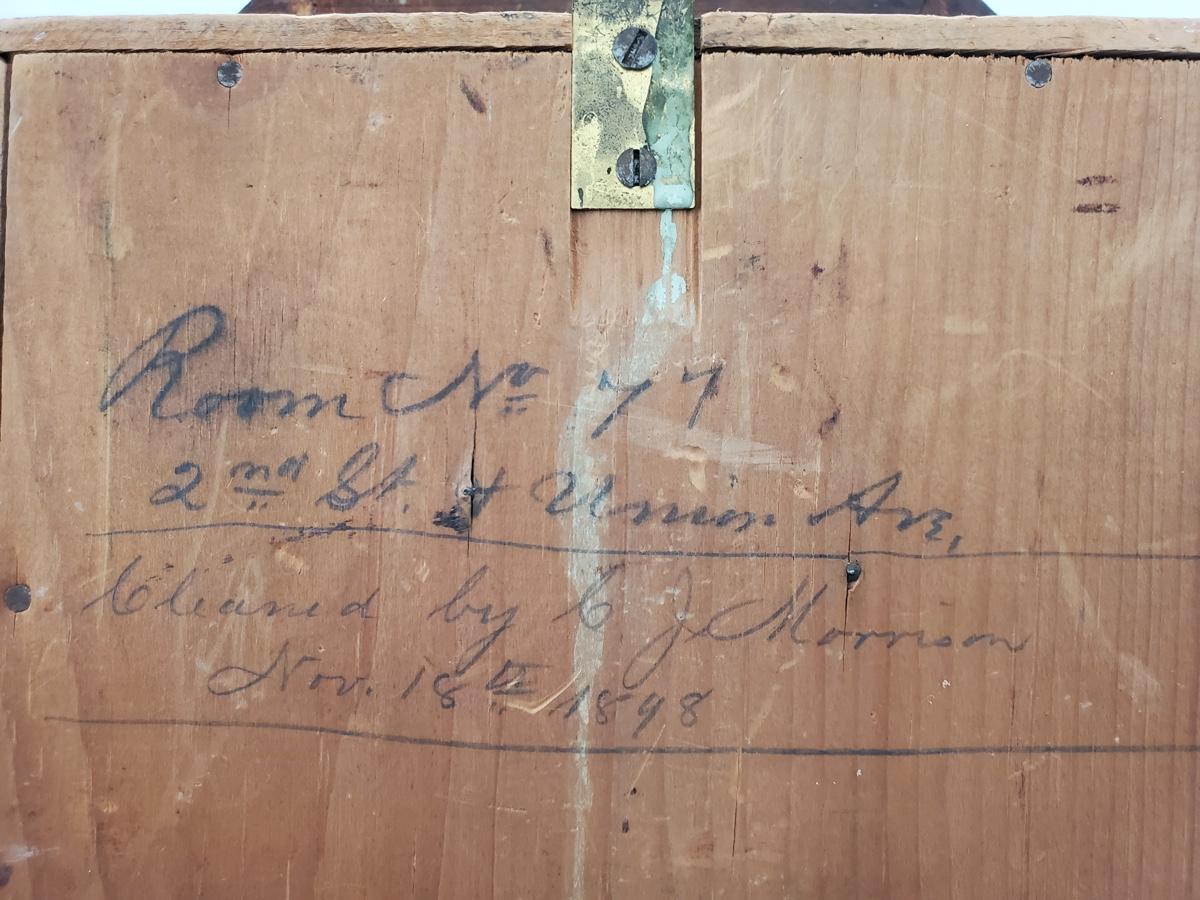 Room No 77
2nd St. & Union Ave.
Cleaned by C. J. Morrison
Nov. 18th 1898